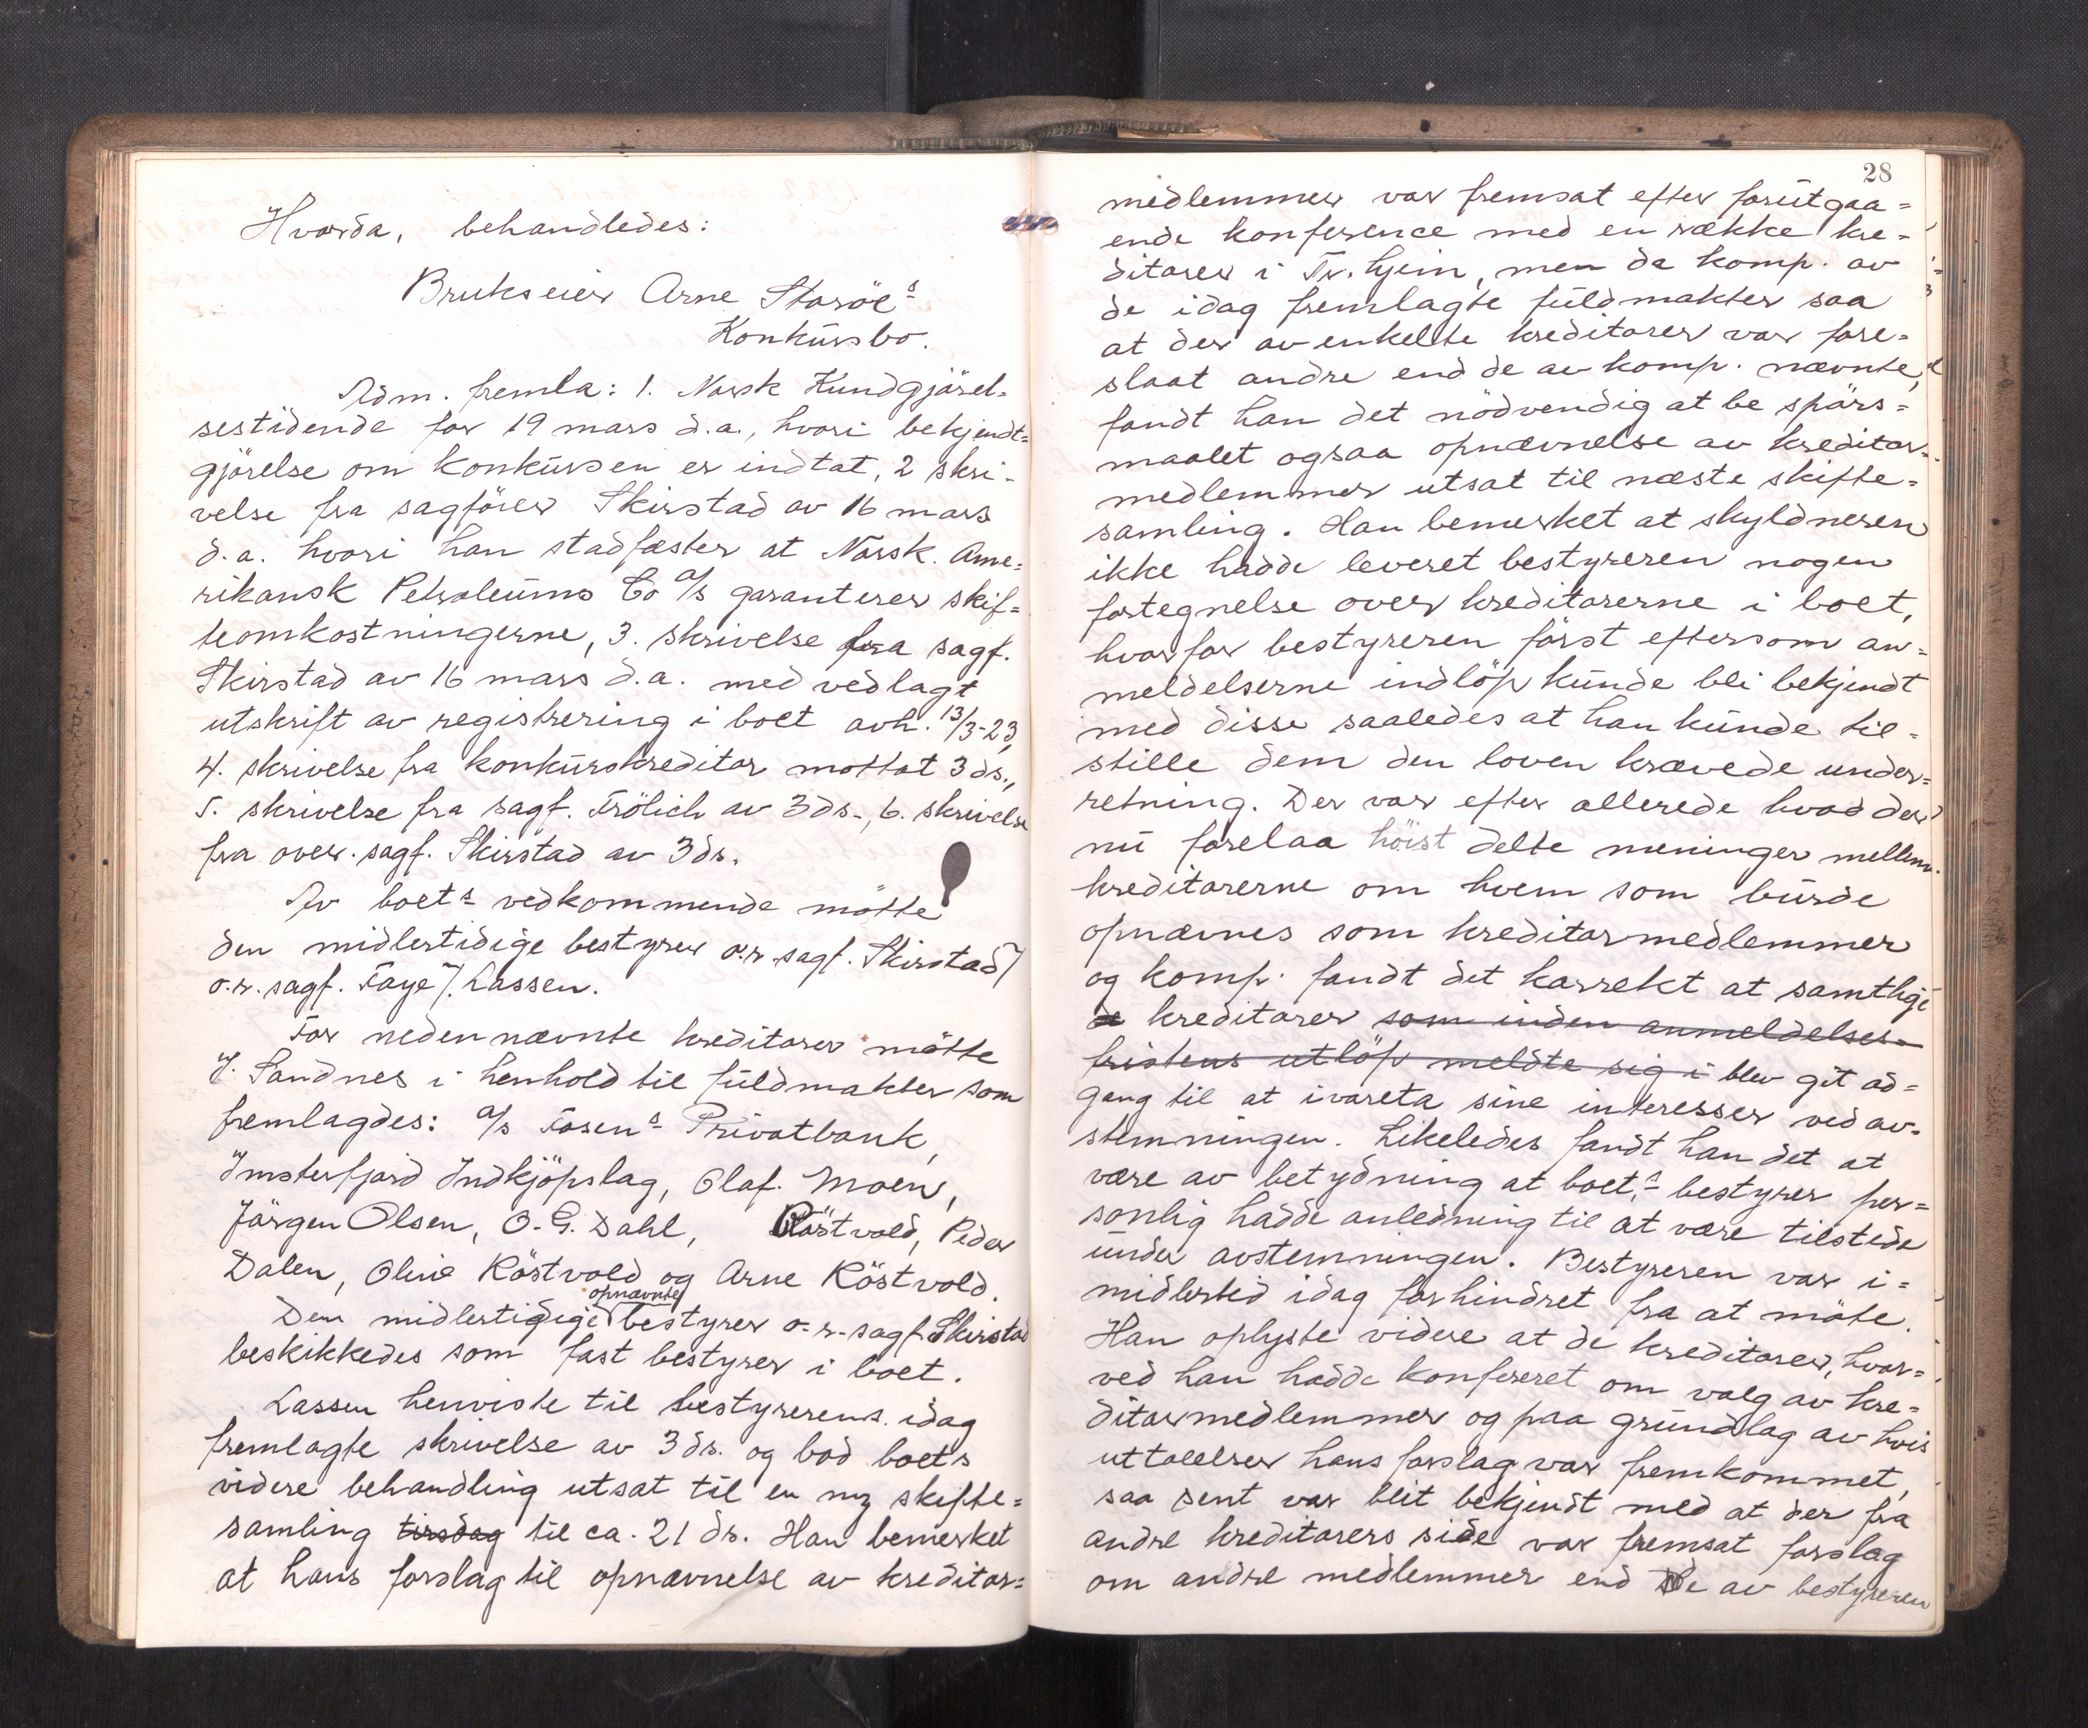 Hvorda, behandledes:
Brukseier Arne Storöes
Konkursbo.
Adm. fremla: 1. Norsk Kundgjörel-
sestidende for 19 mars d.a., hvori bekjendt=
gjörelse om konkursen er indtat, 2 skri-
velse fra sagförer Skirstad av 16 mars
d.a. hvori han stadfæster at Norsk. Ame=
rikansk Petroleums Co a/s garanterer skif=
teomkostningerne, 3. skrivelse fra sagf.
Skirstad av 16 mars d.a. med vedlagt
utskrift av registrering i boet avh. 13/3-23,
4. skrivelse fra konkurskreditor mottat 3 ds.,
5. skrivelse fra sagf. Frölich av 3 ds., 6. skrivelse
fra over. sagf. Skirstad av 3 ds.
Av boets vedkommende mötte
den midlertidige bestyrer o.r. sagf. Skirstad v/
o.r. sagf. Faye v/. Lassen.
For nedennævnte kreditorer mötte
J. Sandnes i henhold til fuldmakter som
fremlagdes: a/s Fosens Privatbank,
Imsterfjord Indkjöpslag, Olaf. Moen,
Jörgen Olsen, O. G. Dahl, Röstvold, Peder
Dalen, Oline Röstvold og Arne Röstvold.
opnævnte
Den midlertidige bestyrer o.r. sagf. Skirstad
beskikkedes som fast bestyrer i boet.
Lassen henviste til bestyrerens idag
fremlagte skrivelse av 3 ds. og bad boets
videre behandling utsat til en ny skifte=
samling tirsdag til ca. 21 ds. Han bemerket
at hans forslag til opnævnelse av kreditor=
28
medlemmer var fremsat efter forutgaa=
ende konference med en række kre=
ditorer i Tr.hjem, men da komp. av
de idag fremlagte fuldmakter saa
at der av enkelte kreditorer var fore=
slaat andre end de av komp. nævnte,
fandt han det nödvendig at be spörs=
maalet ogsaa opnævnelse av kreditor-
medlemmer utsat til næste skifte=
samling. Han bemerket at skyldneren
ikke hadde leveret bestyreren nogen
fortegnelse over kreditorerne i boet,
hvorfor bestyreren först eftersom an=
meldelserne indlöp kunde bli bekjendt
med disse saaledes at han kunde til=
stille dem den loven krævede under=
retning. Der var efter allerede hvad der
nu forelaa höist delte meninger mellem
kreditorerne om hvem som burde
opnævnes som kreditormedlemmer
og komp. fandt det korrekt at samtlige
de kreditorer som inden anmeldelses-
fristens utlöp meldte sig i blev git ad=
gang til at ivareta sine interesser ved av-
stemningen. Likeledes fandt han det at
være av betydning at boets bestyrer per=
sonlig hadde anledning til at være tilstede
under avstemningen. Bestyreren var i=
midlertid idag forhindret fra at möte.
Han oplyste videre at de kreditorer, hvor=
ved han hadde konfereret om valg av kre=
ditormedlemmer og paa grundlag av hvis
uttalelser hans forslag var fremkommet,
saa sent var blit bekjendt med at der fra
andre kreditorers side var fremsat forslag
om andre medlemmer end de av bestyreren